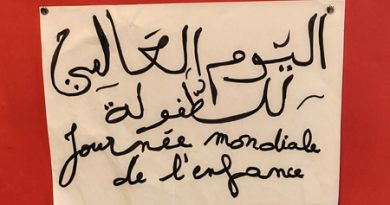 اليَوم العَالمي
للطُّفولة
Journée mondiale
de l'enfance